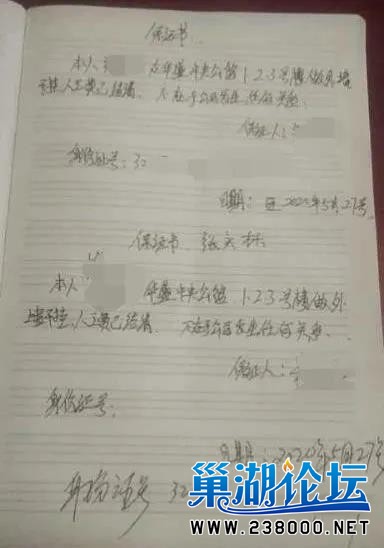 保证书
本人 在华盛中央公馆1-2-3号楼做外墙
人工费已结清. 不在与公司发生任何关系
保证人:
身份证号: 32
日期: 2020年5月27号
保证书
本人 华盛中央公馆1-2-3号楼做外
人工费已结清. 不在与公司发生任何关系.
保证人:
身份证号:
日期: 2020年5月27号
身份证号 32
巢湖论坛
www.238000.net